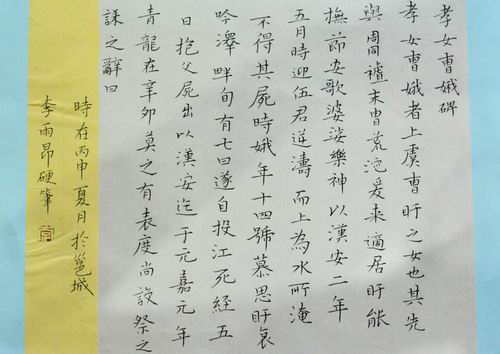 孝女曹娥碑
孝女曹娥者上虞曹盱之女也其先
與周同祖末胄荒沈爰来適居盱能
撫節安歌婆娑樂神以漢安二年
五月時迎伍君逆濤而上為水所淹
不得其屍時娥年十四號慕思盱哀
吟澤畔旬有七日遂自投江死經五
日抱父屍出以漢安迄于元嘉元年
青龍在辛卯莫之有表度尚設祭之
誄之辭曰
時在丙申夏月於邕城
李雨昂硬筆